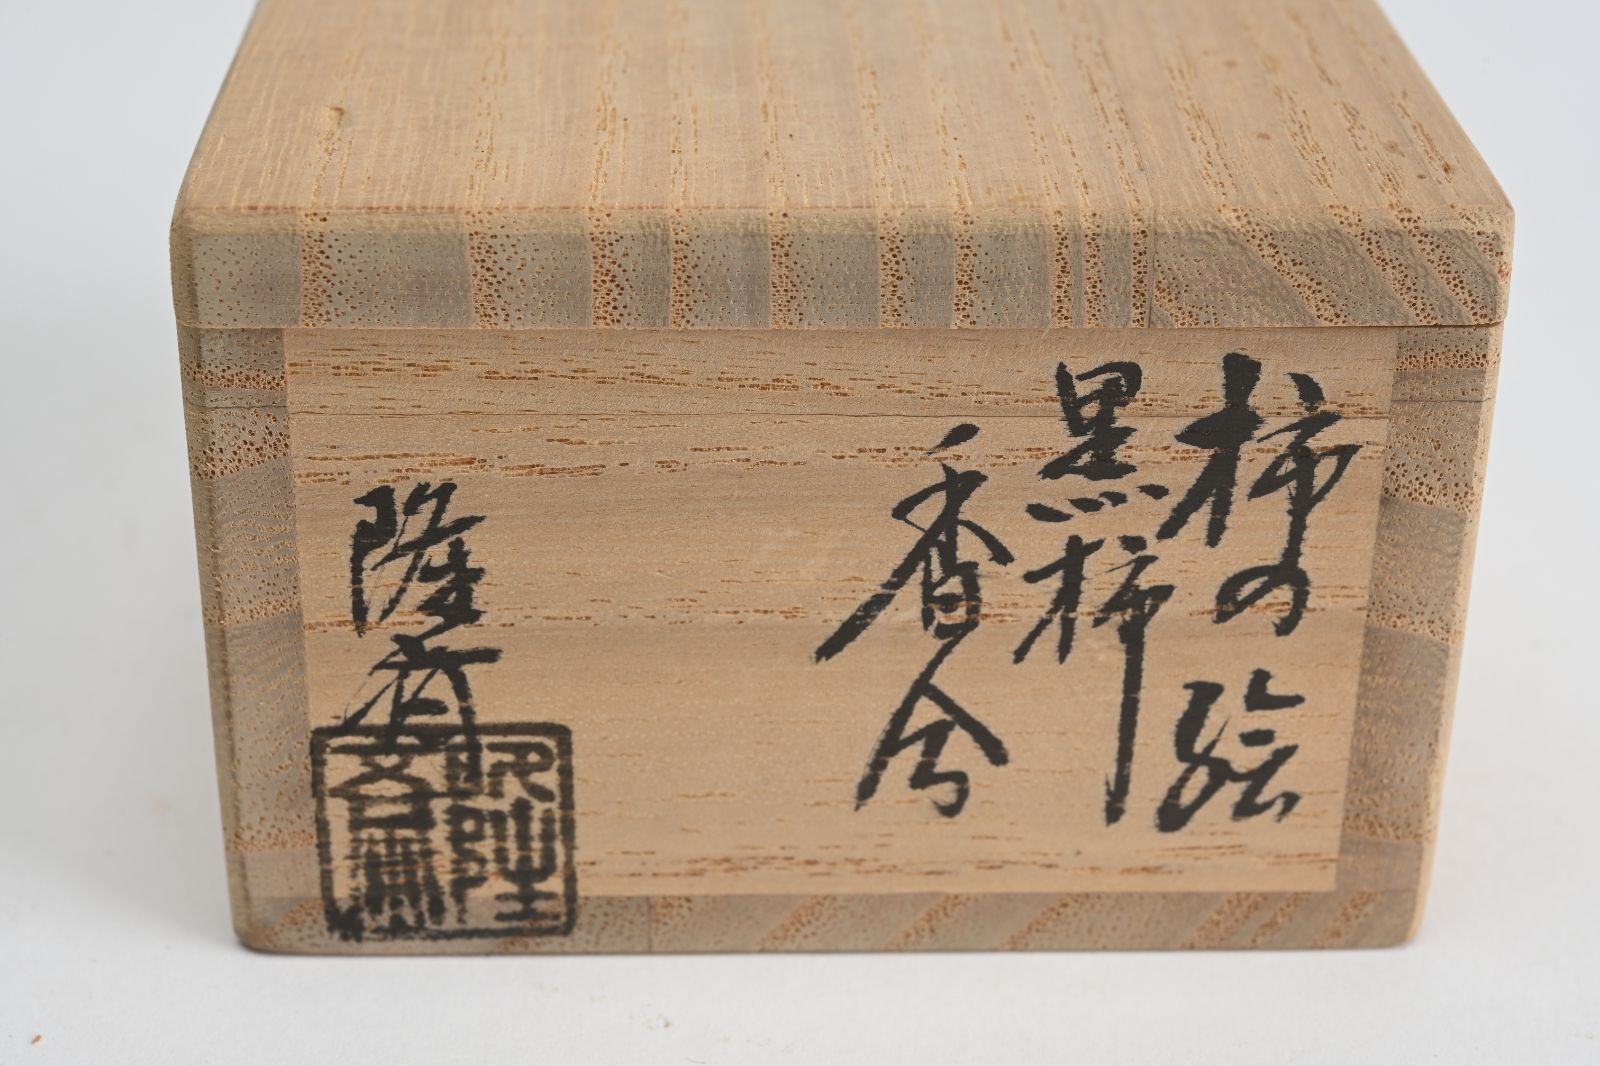 柿の絵
黒柿
香合
隆斎